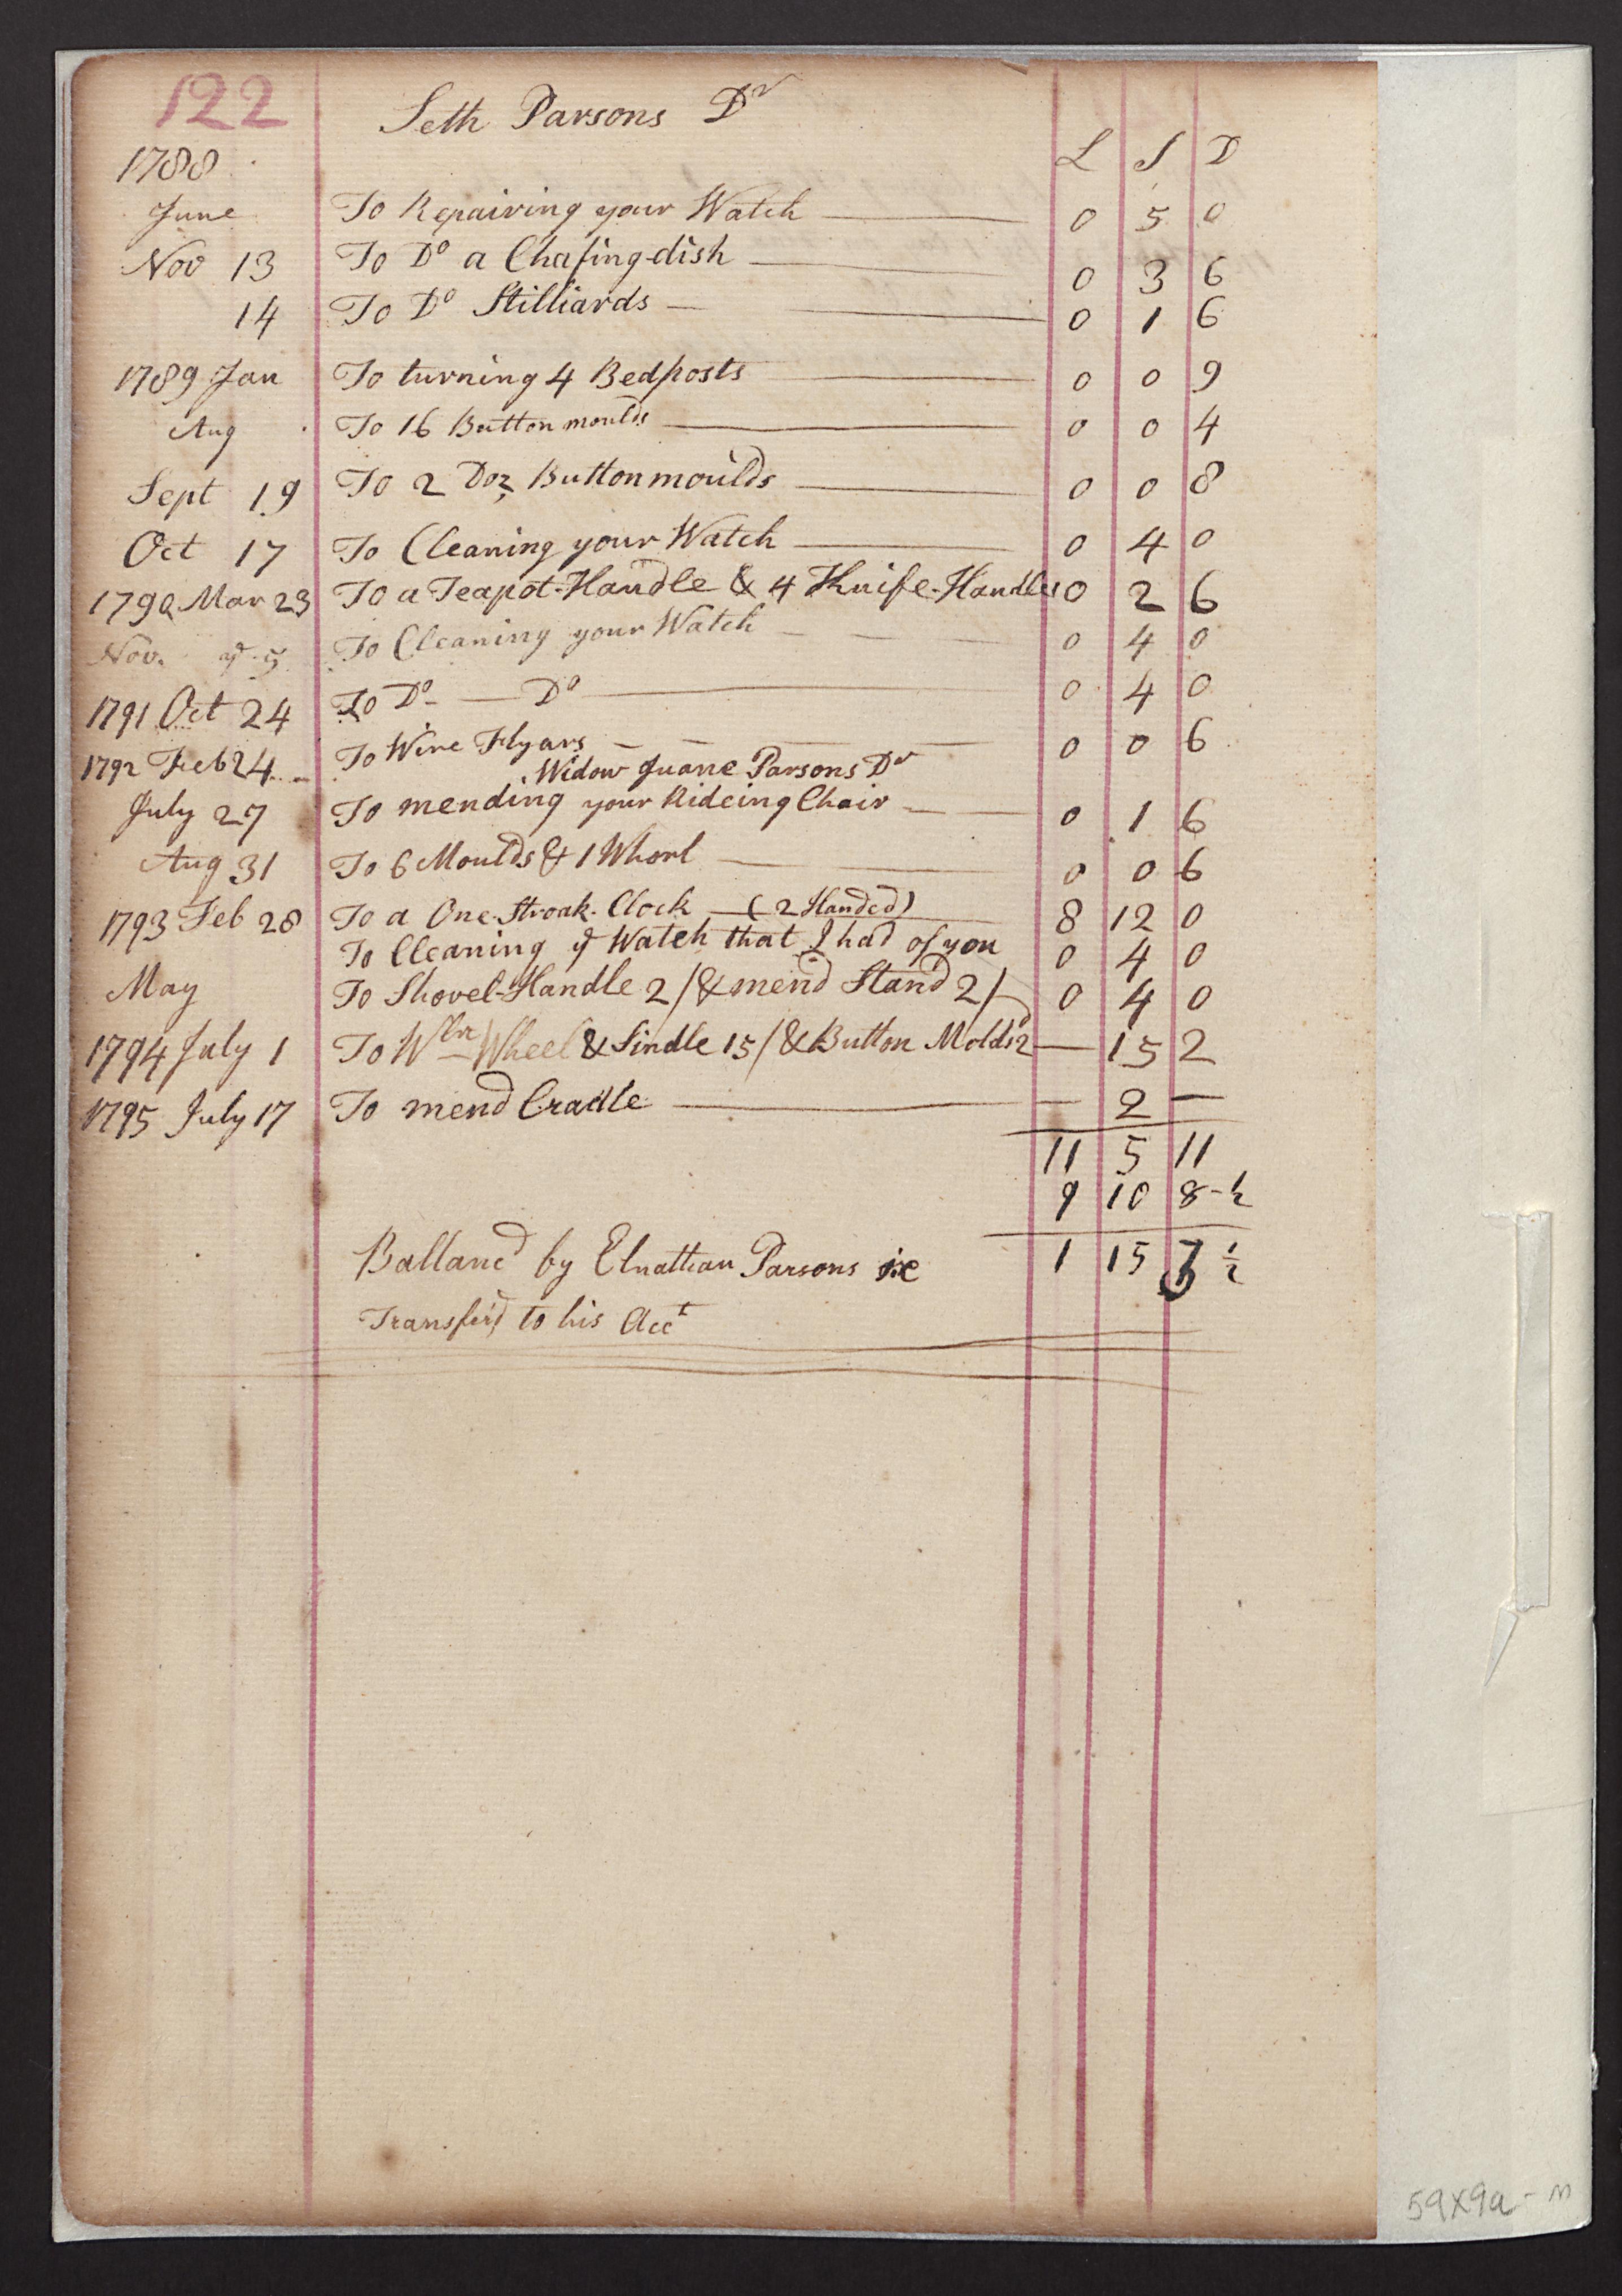 122 Seth Parsons Dr
1788 L S D
June To Repairing your Watch 0 5 0
Nov 13 To Do a Chafing-dish 0 3 6
14 To Do Stilliards 0 1 6
1789 Jan To turning 4 Bedposts 0 0 9
Aug To 16 Button moulds 0 0 4
Sept 19 To 2 Doz Buttonmoulds 0 0 8
Oct 17 To Cleaning your Watch 0 4 0
1790 Mar 23 To a Teapot-Handle & 4 Knife-Handles 0 2 6
Nov. To Cleaning your Watch 0 4 0
1791 Oct 24 To Do — Do 0 4 0
1792 Feb 24 To Wire Flyars 0 0 6
Widow Juane Parsons Dr
July 27 To mending your Rideing Chair 0 1 6
Aug 31 To 6 Moulds & 1 Whorl 0 0 6
1793 Feb 28 To a One-Stroak-Clock (2 Handed) 8 12 0
To Cleaning ye Watch that I had of you 0 4 0
May To Shovel-Handle 2/ & mend Stand 2/ 0 4 0
1794 July 1 To Wln Wheel & Sindle 15/ & Button Molds 2d — 15 2
1795 July 17 To mend Cradle — 2 —
11 5 11
9 10 8-½
Ballancd by Elnathan Parsons ie 1 15 3 ½
Transferd to his Acct
59x9a-m